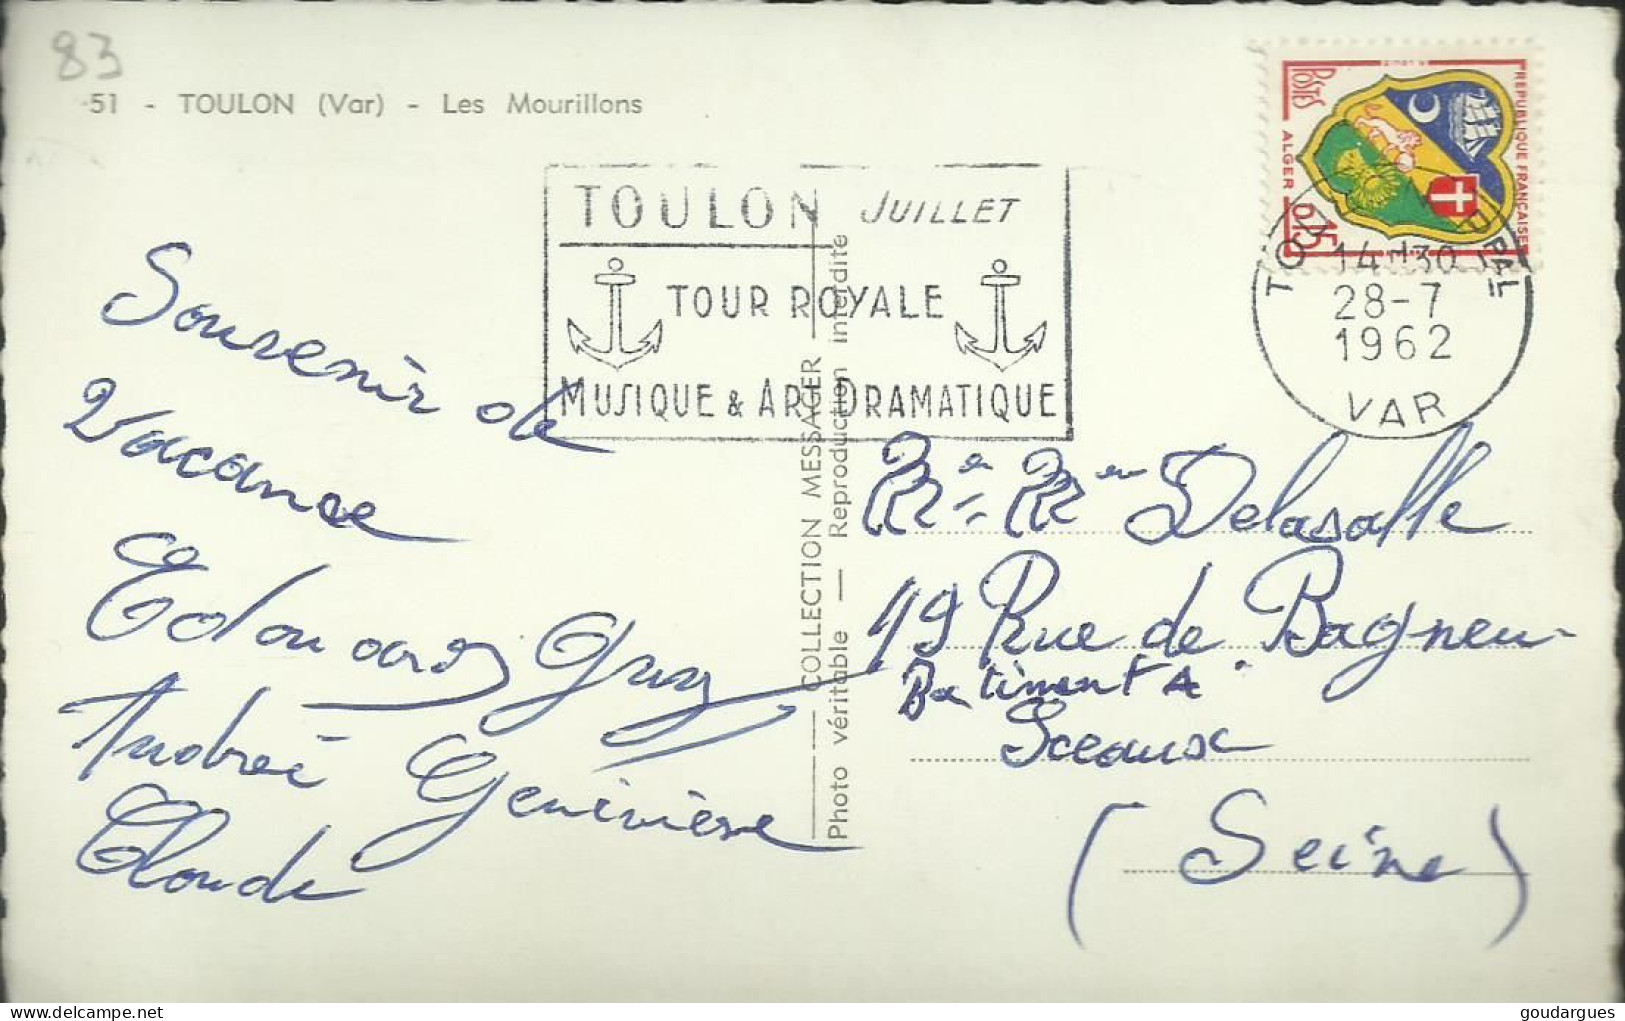 83
51 - TOULON (Var) - Les Mourillons
POSTES
ALGER
0,15
REPUBLIQUE FRANCAISE
TOULON JUILLET
TOUR ROYALE
MUSIQUE & ART DRAMATIQUE
TOULON PPAL
14 H 30
28-7
1962
VAR
Souvenir de
Vacance
Edouard Guy
Andreé Geneviève
Claude
COLLECTION MESSAGER
Photo véritable — Reproduction interdite
Delasalle
19 Rue de Bagneu
Batiment A
Sceaux
(Seine)
goudargues